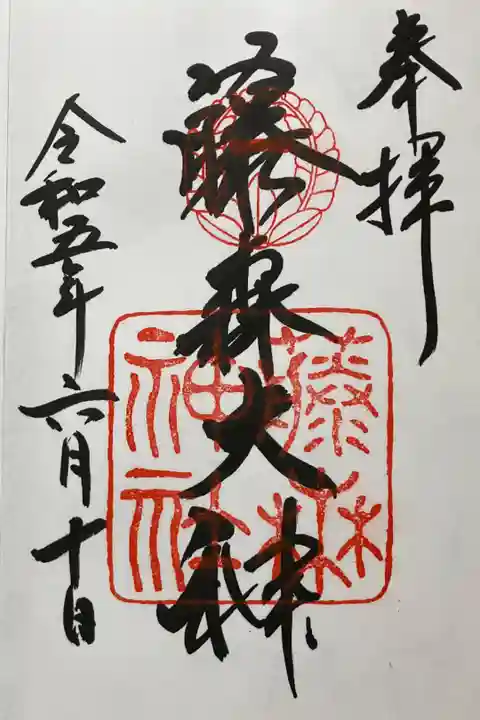 奉拝
藤森大神
令和五年六月十日
藤森神社